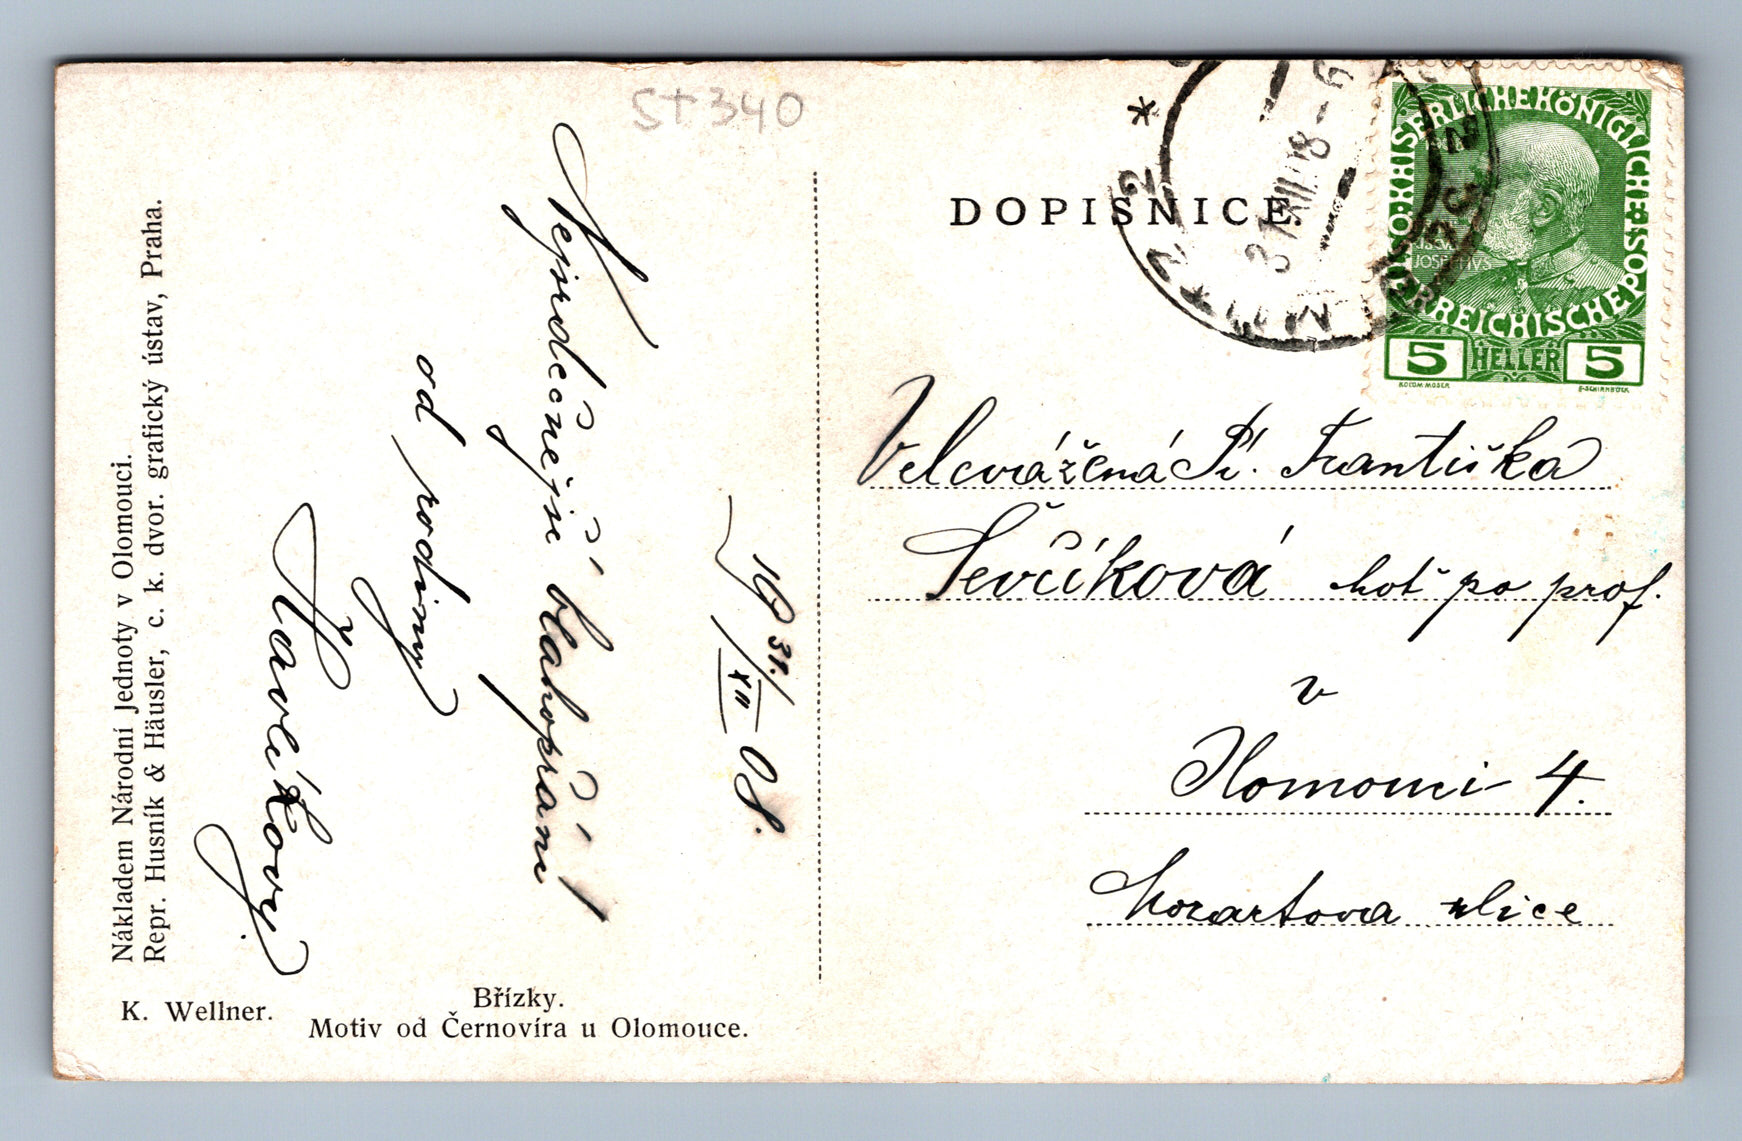 St 340
Nejsrdečnejší blahopřání!
od rodiny
Havelkovy.
19 31./XII 08.
Nákladem Národní Jednoty v Olomouci.
Repr. Husník & Häusler, c. k. dvor. grafický ústav, Praha.
K. Wellner.
Břízky.
Motiv od Černovíra u Olomouce.
DOPISNICE
31 XII 08-6
KAISERLICHE KÖNIGLICHE
ÖSTERREICHISCHE POST
JOSEPHVS
5 HELLER 5
KOLOM. MOSER
F. SCHIRNBÖCK
Velcvážená Pí. Františka
Ševčíková choť po prof.
v
Olomouci 4.
Mozartova ulice